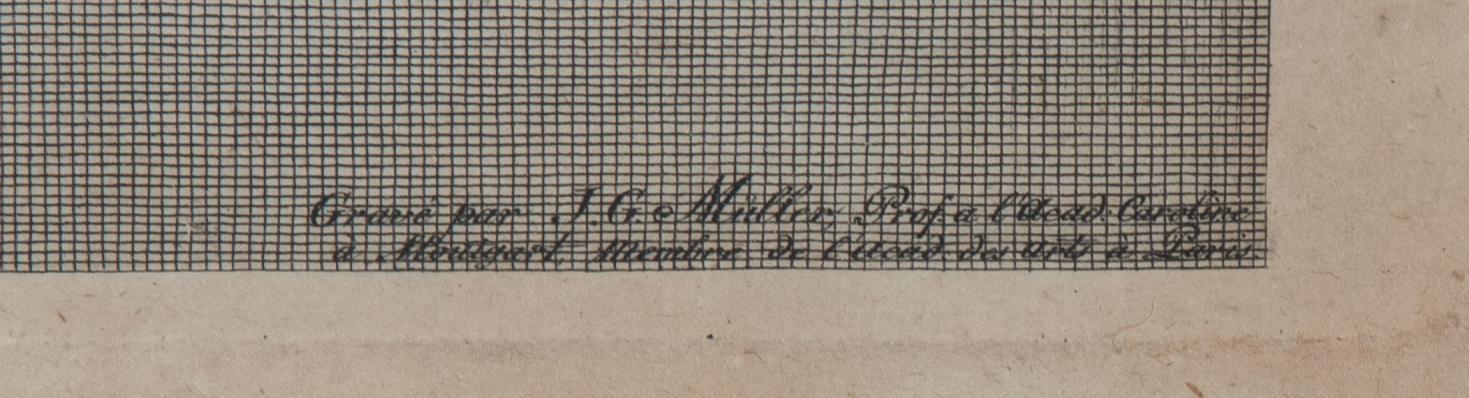 Gravé par J. G. Müller, Prof. a l'Acad. Caroline
à Stoutgart membre de l'Acad. des Arts à Paris.